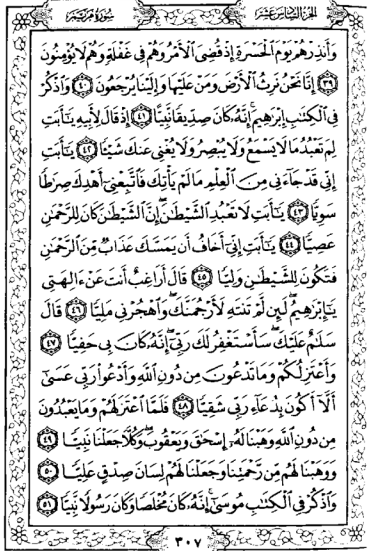 الجزء السادس عشر سورة مريم
وَأَنذِرْهُمْ يَوْمَ ٱلْحَسْرَةِ إِذْ قُضِىَ ٱلْأَمْرُ وَهُمْ فِى غَفْلَةٍ وَهُمْ لَا يُؤْمِنُونَ
٣٩ إِنَّا نَحْنُ نَرِثُ ٱلْأَرْضَ وَمَنْ عَلَيْهَا وَإِلَيْنَا يُرْجَعُونَ ٤٠ وَٱذْكُرْ
فِى ٱلْكِتَٰبِ إِبْرَٰهِيمَ ۚ إِنَّهُۥ كَانَ صِدِّيقًا نَّبِيًّا ٤١ إِذْ قَالَ لِأَبِيهِ يَٰٓأَبَتِ
لِمَ تَعْبُدُ مَا لَا يَسْمَعُ وَلَا يُبْصِرُ وَلَا يُغْنِى عَنكَ شَيْـًٔا ٤٢ يَٰٓأَبَتِ
إِنِّى قَدْ جَآءَنِى مِنَ ٱلْعِلْمِ مَا لَمْ يَأْتِكَ فَٱتَّبِعْنِىٓ أَهْدِكَ صِرَٰطًا
سَوِيًّا ٤٣ يَٰٓأَبَتِ لَا تَعْبُدِ ٱلشَّيْطَٰنَ ۖ إِنَّ ٱلشَّيْطَٰنَ كَانَ لِلرَّحْمَٰنِ
عَصِيًّا ٤٤ يَٰٓأَبَتِ إِنِّىٓ أَخَافُ أَن يَمَسَّكَ عَذَابٌ مِّنَ ٱلرَّحْمَٰنِ
فَتَكُونَ لِلشَّيْطَٰنِ وَلِيًّا ٤٥ قَالَ أَرَاغِبٌ أَنتَ عَنْ ءَالِهَتِى
يَٰٓإِبْرَٰهِيمُ ۖ لَئِن لَّمْ تَنتَهِ لَأَرْجُمَنَّكَ ۖ وَٱهْجُرْنِى مَلِيًّا ٤٦ قَالَ
سَلَٰمٌ عَلَيْكَ ۖ سَأَسْتَغْفِرُ لَكَ رَبِّىٓ ۖ إِنَّهُۥ كَانَ بِى حَفِيًّا ٤٧
وَأَعْتَزِلُكُمْ وَمَا تَدْعُونَ مِن دُونِ ٱللَّهِ وَأَدْعُوا۟ رَبِّى عَسَىٰٓ
أَلَّآ أَكُونَ بِدُعَآءِ رَبِّى شَقِيًّا ٤٨ فَلَمَّا ٱعْتَزَلَهُمْ وَمَا يَعْبُدُونَ
مِن دُونِ ٱللَّهِ وَهَبْنَا لَهُۥٓ إِسْحَٰقَ وَيَعْقُوبَ ۖ وَكُلًّا جَعَلْنَا نَبِيًّا ٤٩
وَوَهَبْنَا لَهُم مِّن رَّحْمَتِنَا وَجَعَلْنَا لَهُمْ لِسَانَ صِدْقٍ عَلِيًّا ٥٠
وَٱذْكُرْ فِى ٱلْكِتَٰبِ مُوسَىٰٓ ۚ إِنَّهُۥ كَانَ مُخْلَصًا وَكَانَ رَسُولًا نَّبِيًّا ٥١
٣٠٧